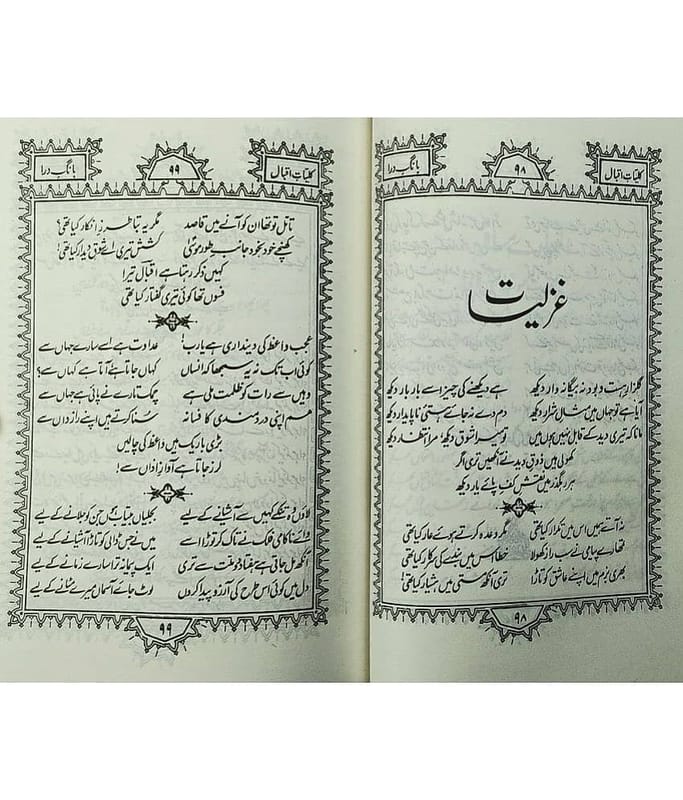 کلیاتِ اقبال
۹۸
بانگِ درا
غزلیات
گلزارِ ہست و بود نہ بیگانہ وار دیکھ ہے دیکھنے کی چیز اسے بار بار دیکھ
آیا ہے تو جہاں میں مثالِ شرار دیکھ دم دے نہ جائے ہستیِ ناپایدار دیکھ
مانا کہ تیری دید کے قابل نہیں ہوں میں تو میرا شوق دیکھ، مرا انتظار دیکھ
کھولی ہیں ذوقِ دید نے آنکھیں تری اگر
ہر رہگذر میں نقشِ کفِ پائے یار دیکھ
نہ آتے ہمیں اس میں تکرار کیا تھی مگر وعدہ کرتے ہوئے عار کیا تھی
تمھارے پیامی نے سب راز کھولا خطا اس میں بندے کی سرکار کیا تھی
بھری بزم میں اپنے عاشق کو تاڑا تری آنکھ مستی میں ہشیار کیا تھی!
۹۸
کلیاتِ اقبال
۹۹
بانگِ درا
تامل تو تھا ان کو آنے میں قاصد مگر یہ بتا طرزِ انکار کیا تھی؟
کھنچے خود بخود جانبِ طور موسیٰؑ کشش تیری اے شوقِ دیدار کیا تھی!
کہیں ذکر رہتا ہے اقبالؔ تیرا
فسوں تھا کوئی تیری گفتار کیا تھی
عجب واعظ کی دینداری ہے یارب! عداوت ہے اسے سارے جہاں سے
کوئی اب تک نہ یہ سمجھا کہ انساں کہاں جاتا ہے آتا ہے کہاں سے؟
وہیں سے رات کو ظلمت ملی ہے چمک تارے نے پائی ہے جہاں سے
ہم اپنی دردمندی کا فسانہ سنا کرتے ہیں اپنے رازداں سے
بڑی باریک ہیں واعظ کی چالیں
لرز جاتا ہے آوازِ اذاں سے!
لاؤں وہ تنکے کہیں سے آشیانے کے لیے بجلیاں بیتاب ہوں جن کو جلانے کے لیے
وائے ناکامی فلک نے تاک کر توڑا اسے میں نے جس ڈالی کو تاڑا آشیانے کے لیے
آنکھ مل جاتی ہے ہفتاد و دو ملت سے تری ایک پیمانہ ترا سارے زمانے کے لیے
دل میں کوئی اس طرح کی آرزو پیدا کروں لوٹ جائے آسماں میرے مٹانے کے لیے
۹۹